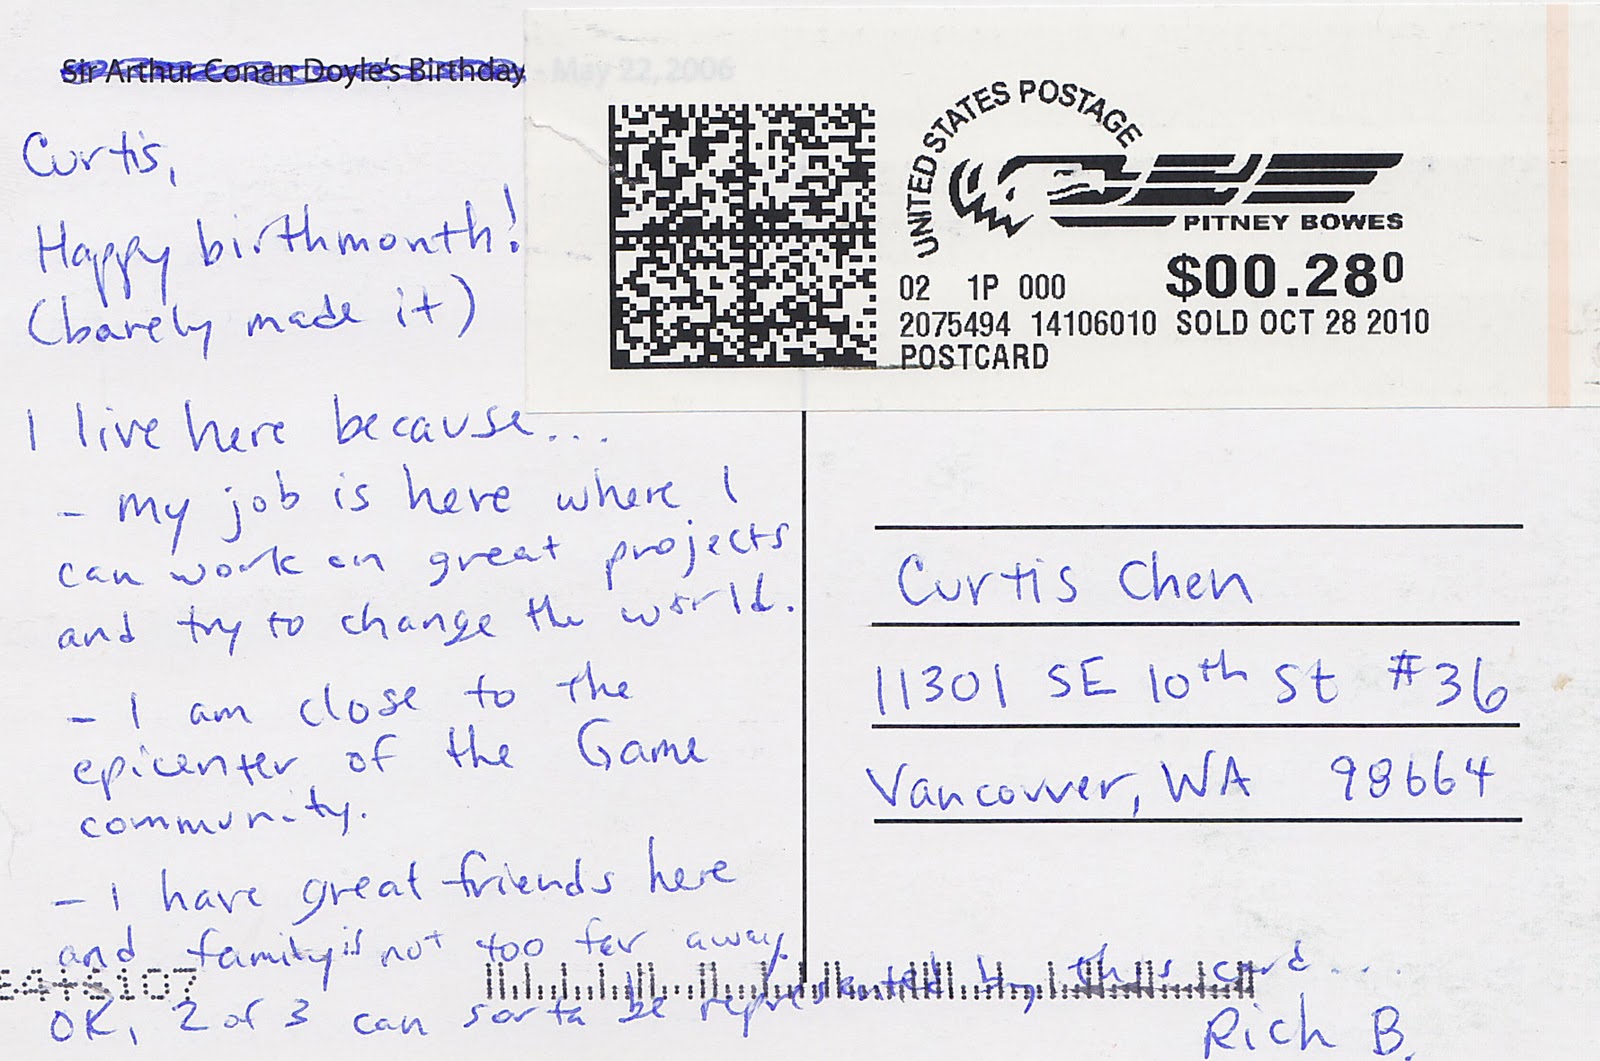 Sir Arthur Conan Doyle's Birthday - May 22, 2006
Curtis,
Happy birthmonth!
(barely made it)
I live here because...
- my job is here where I
can work on great projects
and try to change the world.
- I am close to the
epicenter of the Game
community.
- I have great friends here
and family is not too far away.
OK, 2 of 3 can sorta be represented by this card...
Rich B.
UNITED STATES POSTAGE
PITNEY BOWES
02 1P 000 $00.280
2075494 14106010 SOLD OCT 28 2010
POSTCARD
Curtis Chen
11301 SE 10th St #36
Vancouver, WA 98664